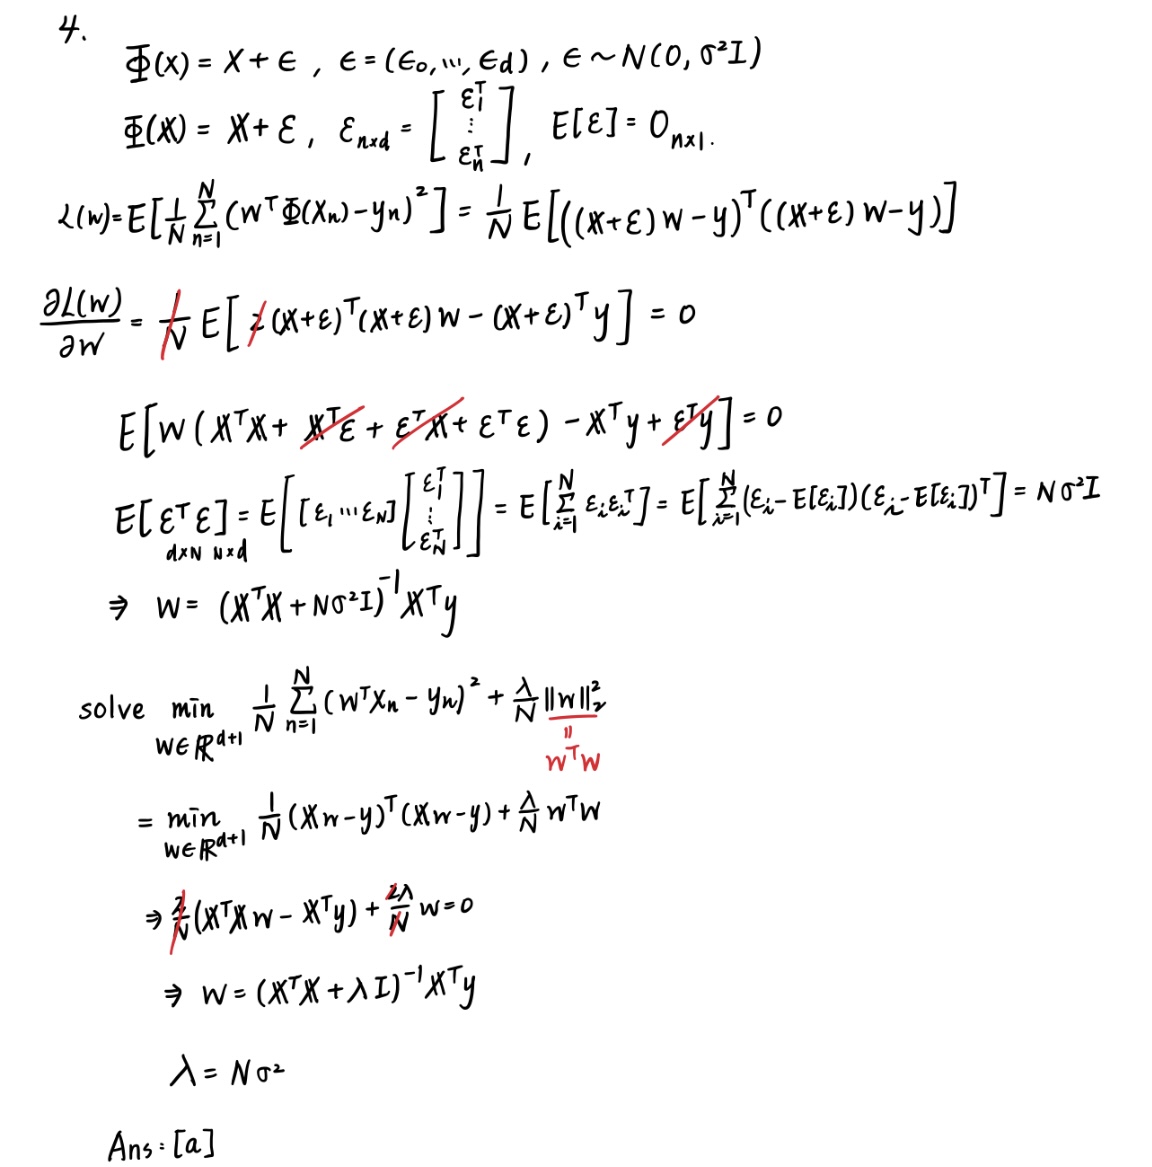 4.
Φ(x) = x + ϵ , ϵ = (ϵ₀, ..., ϵd) , ϵ ~ N(0, σ²I)
Φ(X) = X + ε , ε_{n×d} = [ε₁ᵀ ⋮ εₙᵀ] , E[ε] = 0_{n×1}.
L(w) = E[1/N Σ_{n=1}^{N} (wᵀΦ(xₙ) - yₙ)²] = 1/N E[((X+ε)w - y)ᵀ((X+ε)w - y)]
∂L(w)/∂w = 1/N E[2(X+ε)ᵀ(X+ε)w - (X+ε)ᵀy] = 0
E[w(XᵀX + Xᵀε + εᵀX + εᵀε) - Xᵀy + εᵀy] = 0
E[εᵀε] = E[[ε₁ ... ε_N][ε₁ᵀ ⋮ ε_Nᵀ]] = E[Σ_{i=1}^{N} εᵢεᵢᵀ] = E[Σ_{i=1}^{N} (εᵢ - E[εᵢ])(εᵢ - E[εᵢ])ᵀ] = Nσ²I
d×N N×d
⇒ w = (XᵀX + Nσ²I)⁻¹Xᵀy
solve min_{w∈ℝ^{d+1}} 1/N Σ_{n=1}^{N} (wᵀxₙ - yₙ)² + λ/N ||w||₂²
=
wᵀw
= min_{w∈ℝ^{d+1}} 1/N (Xw - y)ᵀ(Xw - y) + λ/N wᵀw
⇒ 2/N (XᵀXw - Xᵀy) + 2λ/N w = 0
⇒ w = (XᵀX + λI)⁻¹Xᵀy
λ = Nσ²
Ans: [a]